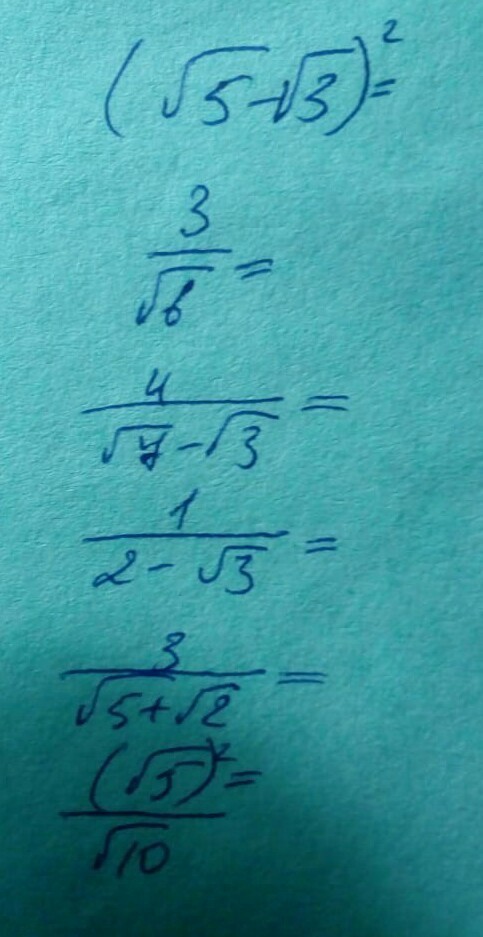 (√5-√3)²=
3/√6=
4/(√7-√3)=
1/(2-√3)=
3/(√5+√2)=
(√5)²/√10=